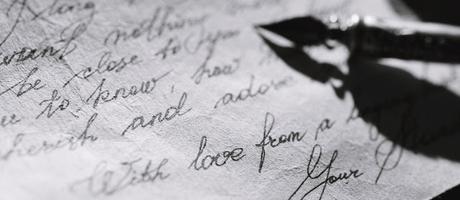 long
want nothing
be close to you
to know, how
cherish and adore
With love from a
Your